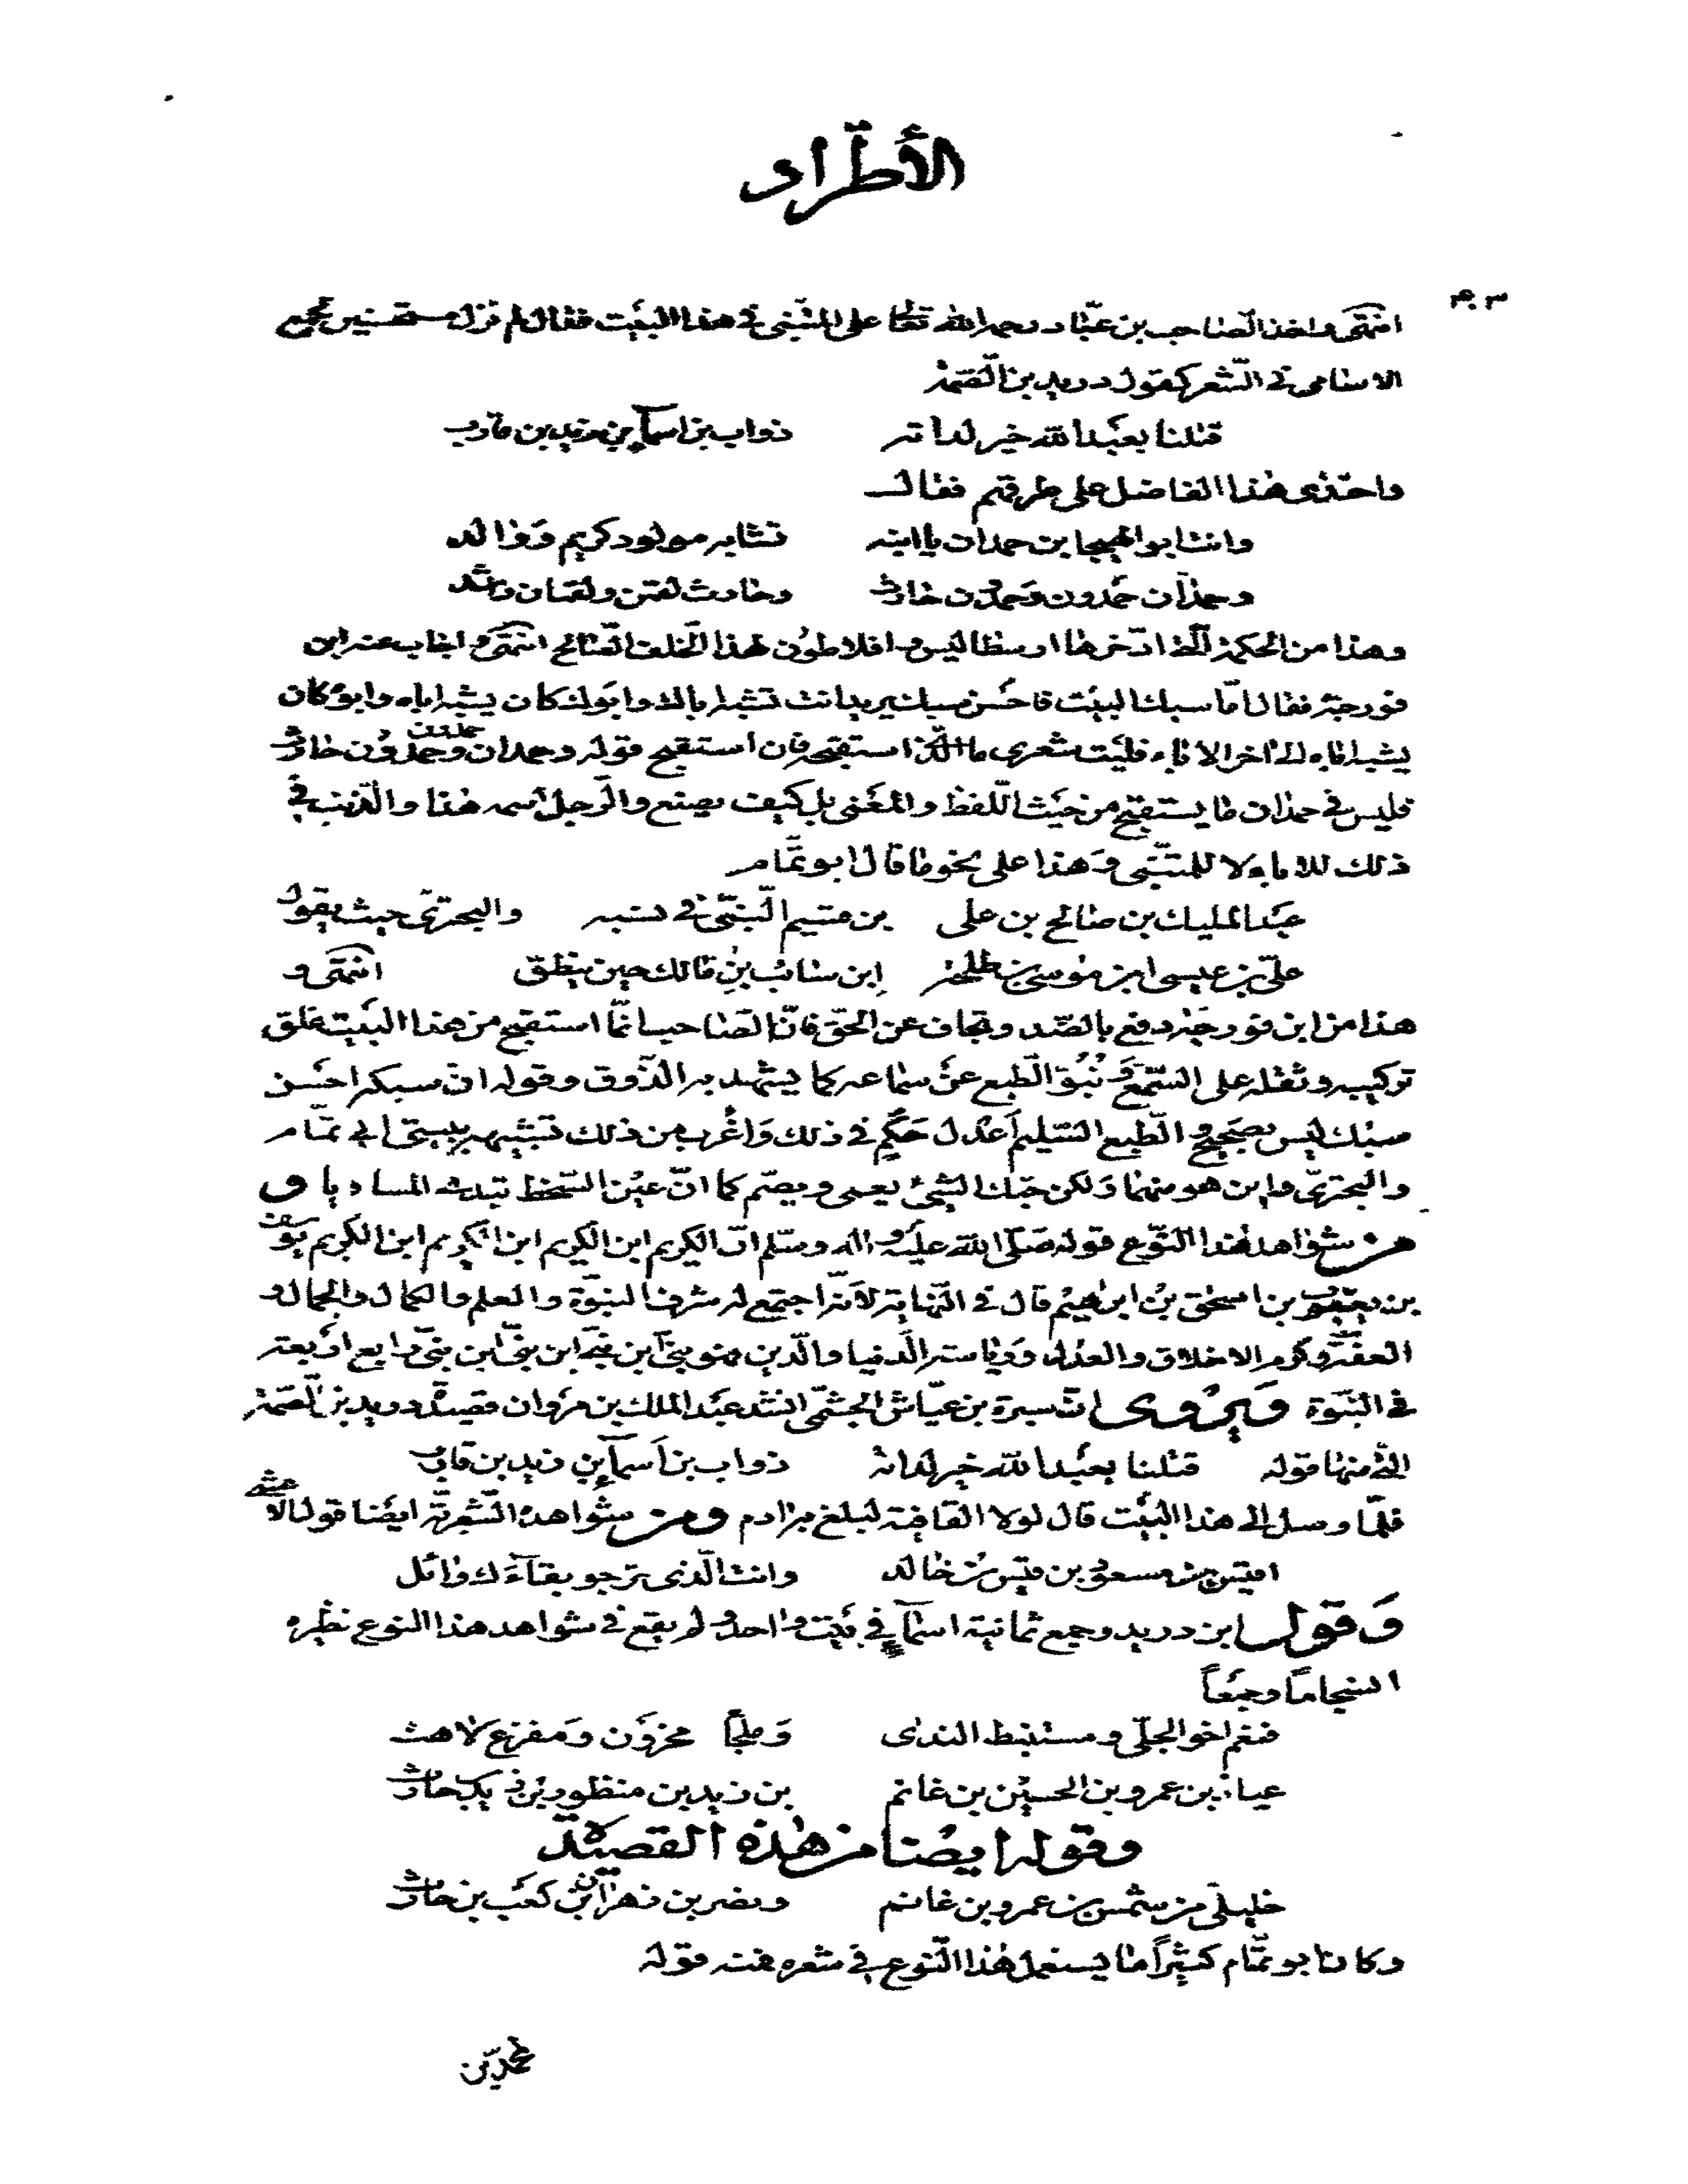 الأطّراد
٣٠٣
انتهى واخذ الصاحب بن عبّاد رحمه الله تعالى على المتنبى فى هذا البيت فقال لم نزل مستحسنين لجمع
الاسامى فى الشعر كقول دريد بن الصّمة
قتلنا بعبد الله خير لداته ذواب بن اسمآء بن زيد بن قارب
واحتذى هذا الفاضل على طرقهم فقال
وانت ابو الهيجا بن حمدان يا ابنه تشابه مولود كريم ووالد
وحمدان حمدون وحمدون حارث وحارث لقمن ولقمان راشد
وهذا من الحكمة الّتى ادّخرها ارسطاليس وافلاطون لهذا الخلف الصّالح انتهى واجاب عنه ابن
فورجة فقال امّا سبك البيت فاحسن سبك يريد انت تشبه اباك وابوك كان يشبه اباه وابوه كان
يشبه اباه الى اخر الاباء فليت شعرى ما الّذى استقبحه فان استقبح قوله وحمدان حمدون وحمدون حارث
فليس فى حمدان ما يستقبح من حيث اللّفظ والمعنى بل كيف يصنع والرّجل اسمه هذا والذّنب فى
ذلك للاباء لا للمتنبّى وهذا على نحو ما قال ابو تمّام
عبد المليك بن صالح بن على بن قسيم النّبىّ فى نسبه والبحترىّ حيث يقول
علىّ بن عيسى ابن موسى بن طلحة ابن سائب بن مالك حين ينطق انتهى و
هذا من ابن فورجة دفع بالصّد وتجاف عن الحقّ فانّ الصّاحب انّما استقبح من هذا البيت قلق
تركيبه وثقله على السّمع ونبوّ الطّبع عن سماعه كما يشهد به الذّوق وقوله انّ سبكه احسن
سبك ليس بصحيح والطّبع السّليم اعدل حكم فى ذلك واغرب من ذلك تشبيهه ببيتى ابى تمّام
والبحترىّ واين هو منهما ولكن حبّك الشّىء يعمى ويصمّ كما انّ عين السّخط تبدى المساويا و
من شواهد هذا النّوع قوله صلّى الله عليه واله وسلّم انّ الكريم ابن الكريم ابن الكريم ابن الكريم يوسف
بن يعقوب بن اسحق بن ابرهيم قال فى النّهاية لانّه اجتمع له شرف النبوّة والعلم والكمال والجمال و
العفّة وكرم الاخلاق والعدل ورياسة الدّنيا والدّين فهو نبىّ ابن نبىّ ابن نبىّ ابن نبىّ رابع اربعة
فى النّبوّة ويروى انّ سبرة بن عيّاش الجشمىّ انشد عبد الملك بن مروان قصيدة دريد بن الصّمّة
الّتى منها قوله قتلنا بعبد الله خير لداته ذواب بن اسمآء بن زيد بن قارب
فلمّا وصل الى هذا البيت قال لولا القافية لبلغ به ادم ومن شواهده الشّعريّة ايضا قول الاعشى
اقيس بن مسعود بن قيس بن خالد وانت الّذى ترجو بقآءك وائل
وقول ابن دريد وجمع ثمانية اسمآء فى بيت واحد ولم يقع فى شواهد هذا النوع نظيره
انسجاماً وجمعاً
فنعم اخو الجلّى ومستنبط الندى وملجأ محزون ومفزع لاهث
عياذ بن عمرو بن الحسين بن غانم بن زيد بن منظور بن زيد بن حارث
وقوله ايضا من هذه القصيدة
خليلىّ من شمس بن عمرو بن غانم ونصر بن زهران بن كعب بن حارث
وكان ابو تمّام كثيراً ما يستعمل هذا النّوع فى شعره فمنه قوله